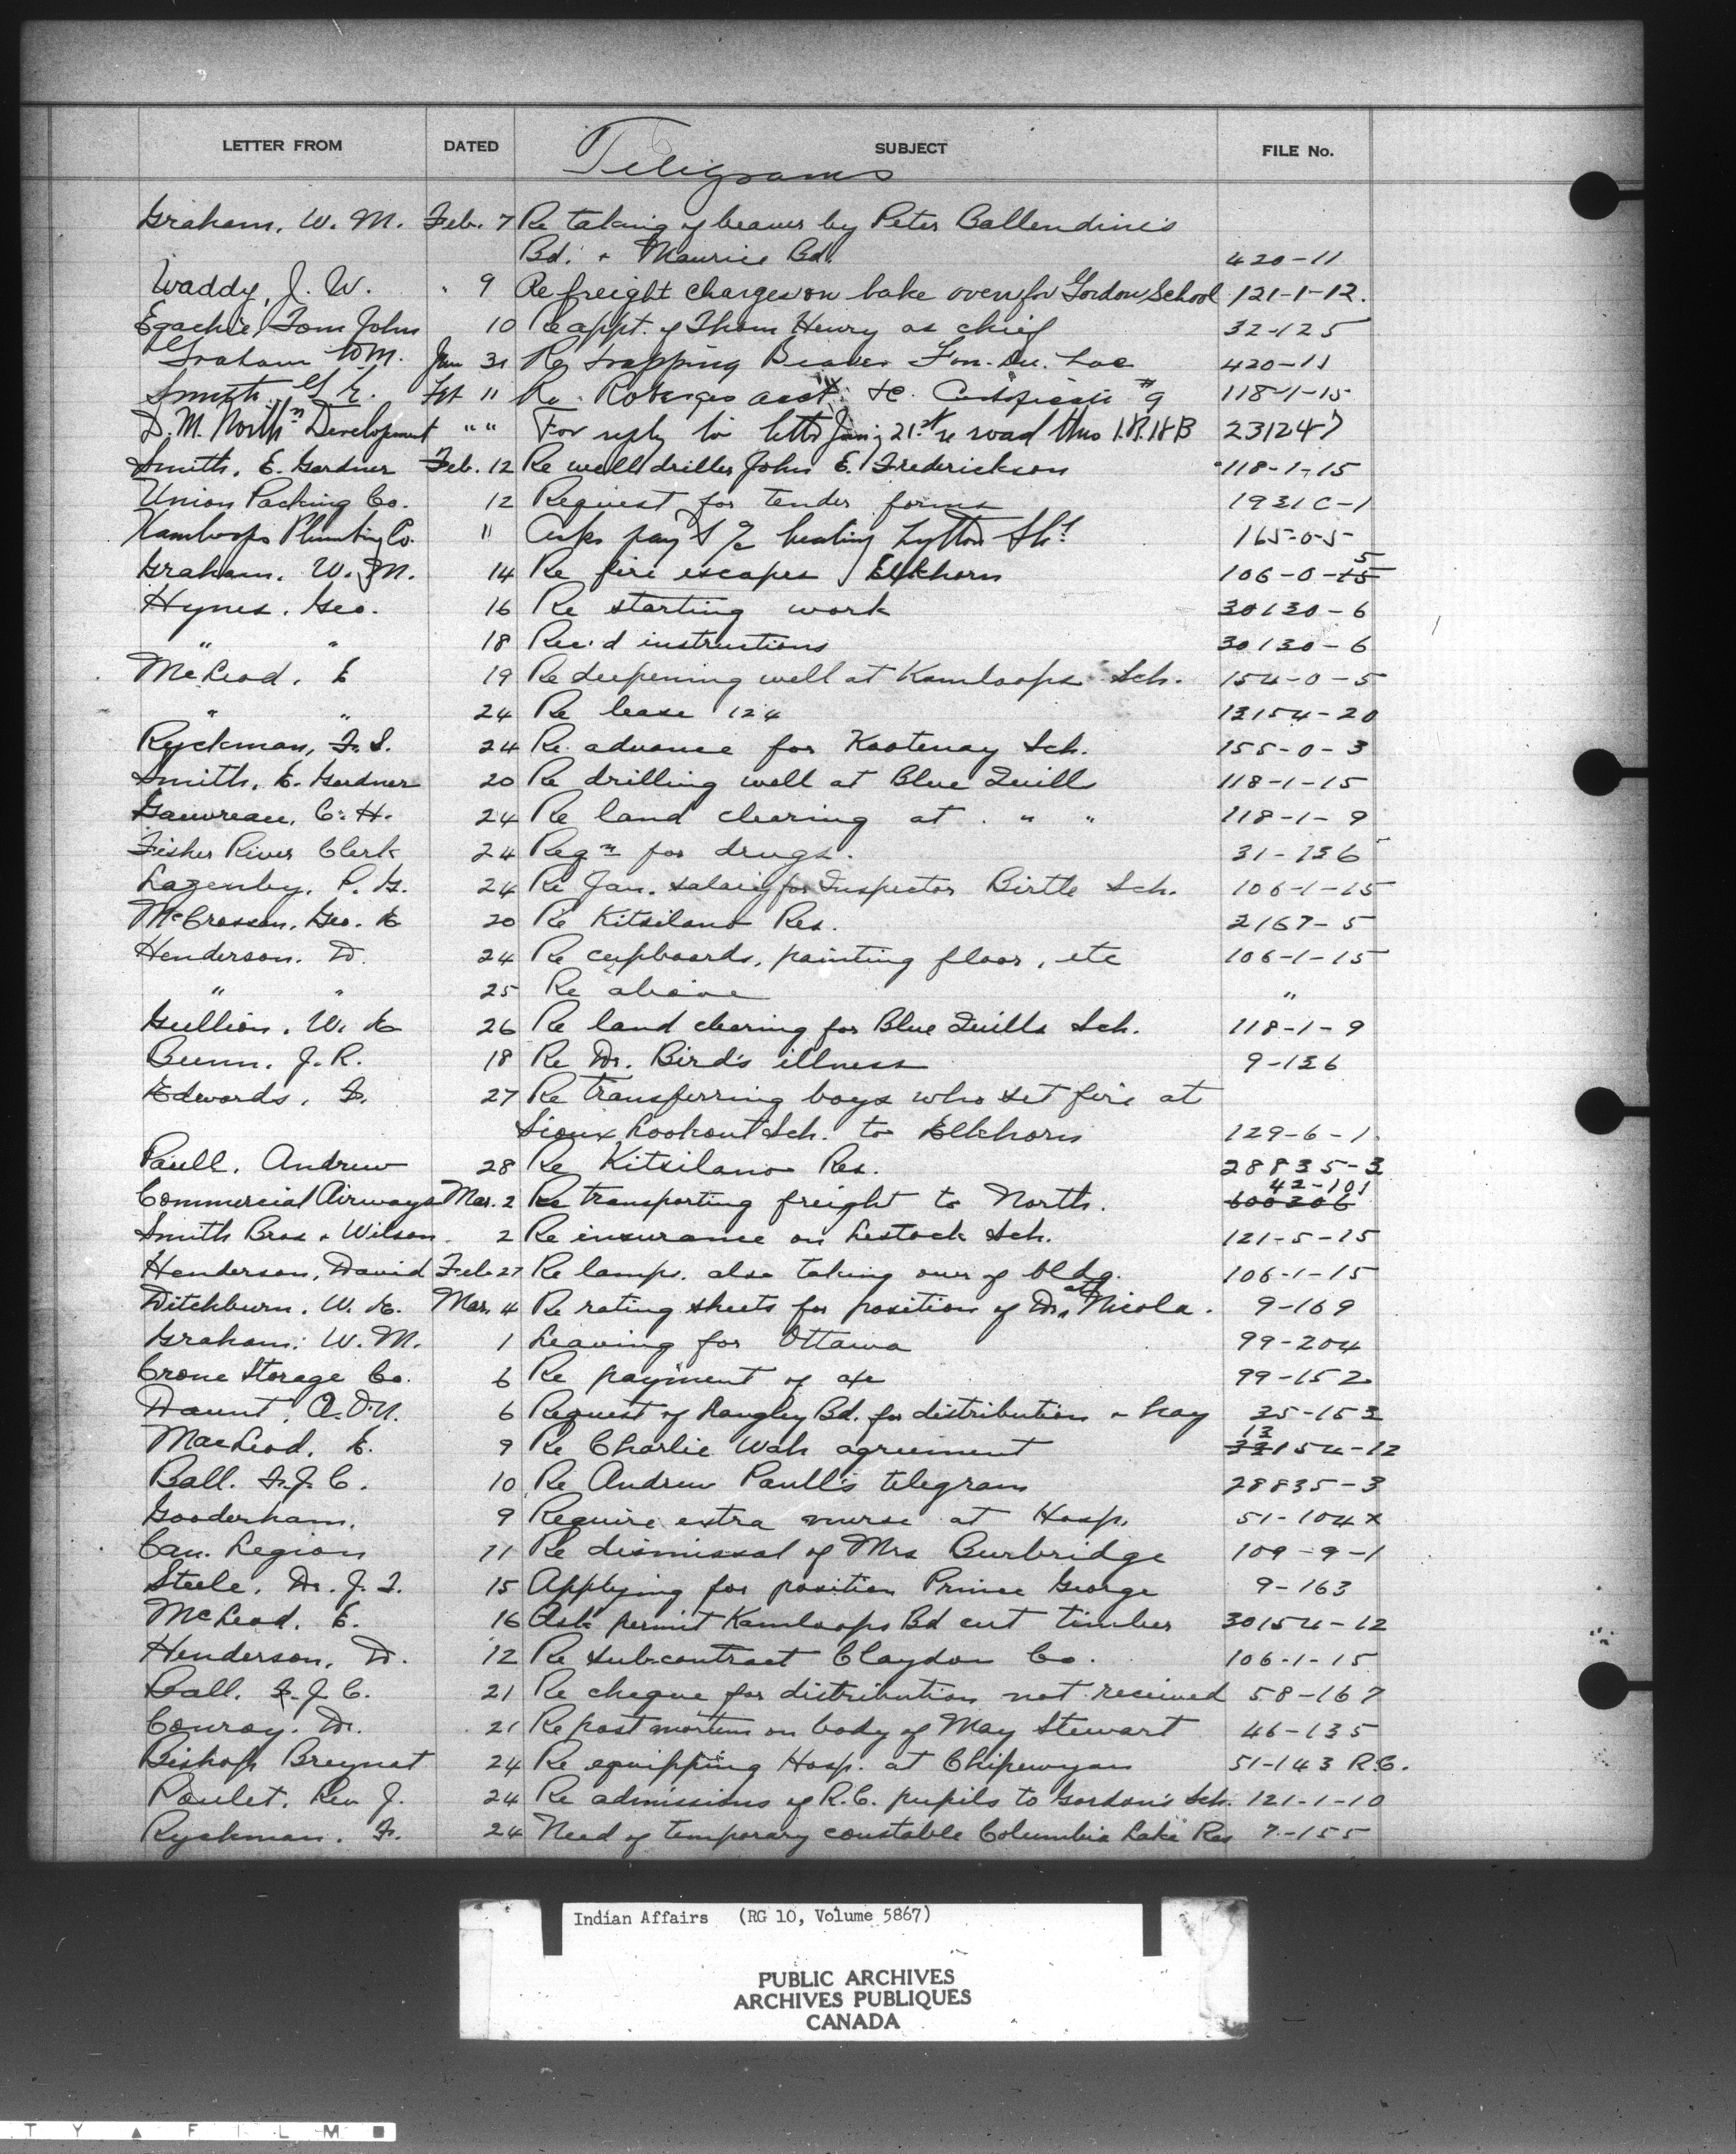 LETTER FROM DATED SUBJECT FILE No.
Teligrams
Graham, W. M. Feb. 7 Re taking of beaver by Peter Ballendine's
Bd. + Maurice Bd. 420-11
Waddy, J. W. " 9 Re freight charges on bake oven for Gordon School 121-1-12.
Egachie, Tom John 10 Re appt. of Thom Henry as chief 32-125
Graham WM. Jan 31 Re trapping Beaver Fon. Du. Lac 420-11
Smith G. E. Feb 11 Re. acct. Certificate #9 118-1-15
D. M. North'n Development " " For reply to letter Jan'y 21st re road thro I.R. 18B 231247
Smith, E. Gardner Feb. 12 Re well driller John E. Frederickson 118-1-15
Union Packing Co. 12 Request for tender forms 1931C-1
Kamloops Plumbing Co. 11 Asks pay't heating Lytton Schl 165-0-5
Graham. W. M. 14 Re fire escapes Elkhorn 106-0-15 5
Hynes. Geo. 16 Re starting work 30130-6
" " 18 Rec'd instructions 30130-6
McLeod. E 19 Re deepening well at Kamloops Sch. 154-0-5
" " 24 Re lease 124 13154-20
Ryckman, F. S. 24 Re advance for Kootenay Sch. 155-0-3
Smith, E. Gardner 20 Re drilling well at Blue Quills 118-1-15
Gauvreau, C. H. 24 Re land clearing at " " 118-1-9
Fisher River Clerk 24 Reqn for drugs. 31-136
Lazenby. P. G. 24 Re Jan. salary for Inspector Birtle Sch. 106-1-15
McCrossan, Geo. E 20 Re Kitsilano Res. 2167-5
Henderson. D. 24 Re cupboards, painting floor, etc 106-1-15
" " 25 Re above "
Gullion. W. E 26 Re land clearing for Blue Quills Sch. 118-1-9
Bunn. J. R. 18 Re Dr. Bird's illness 9-136
Edwards, F. 27 Re transferring boys who set fire at
Sioux Lookout Sch. to Elkhorn 129-6-1
Paull. Andrew 28 Re Kitsilano Res. 28835-3
Commercial Airways Mar. 2 Re transporting freight to North. 600306 42-101
Smith Bros + Wilson. 2 Re insurance on Lestock Sch. 121-5-15
Henderson, David Feb 27 Re lamps. also taking over of bldg. 106-1-15
Ditchburn. W. E. Mar. 4 Re rating sheets for position of Dr. at Nicola. 9-169
Graham. W. M. 1 Leaving for Ottawa 99-204
Crone Storage Co. 6 Re payment of a/c 99-152
Daunt. A. O'N. 6 Request of Langley Bd. for distribution + hay 35-153
MacLeod. E. 9 Re Charlie Wah agreement 33 13 154-12
Ball. F. J. C. 10 Re Andrew Paull's telegram 28835-3
Gooderham. 9 Require extra nurse at Hosp. 51-104x
Can. Legion 11 Re dismissal of Mrs Burbridge 109-9-1
Steele. Dr. J. S. 15 Applying for position Prince George 9-163
McLeod. E. 16 Ask permit Kamloops Bd cut timber 30154-12
Henderson, D. 12 Re sub-contract Claydon Co. 106-1-15
Ball. F. J. C. 21 Re cheque for distribution not received 58-167
Conroy. Dr. 21 Re post mortem on body of May Stewart 46-135
Bishop Breynat 24 Re equipping Hosp. at Chipewyan 51-143 R.C.
Poulet. Rev J. 24 Re admissions of R.C. pupils to Gordon's Sch. 121-1-10
Ryckman. F. 24 Need of temporary constable Columbia Lake Res 7-155
Indian Affairs (RG 10, Volume 5867)
PUBLIC ARCHIVES
ARCHIVES PUBLIQUES
CANADA
T Y ▲ F I L M ■